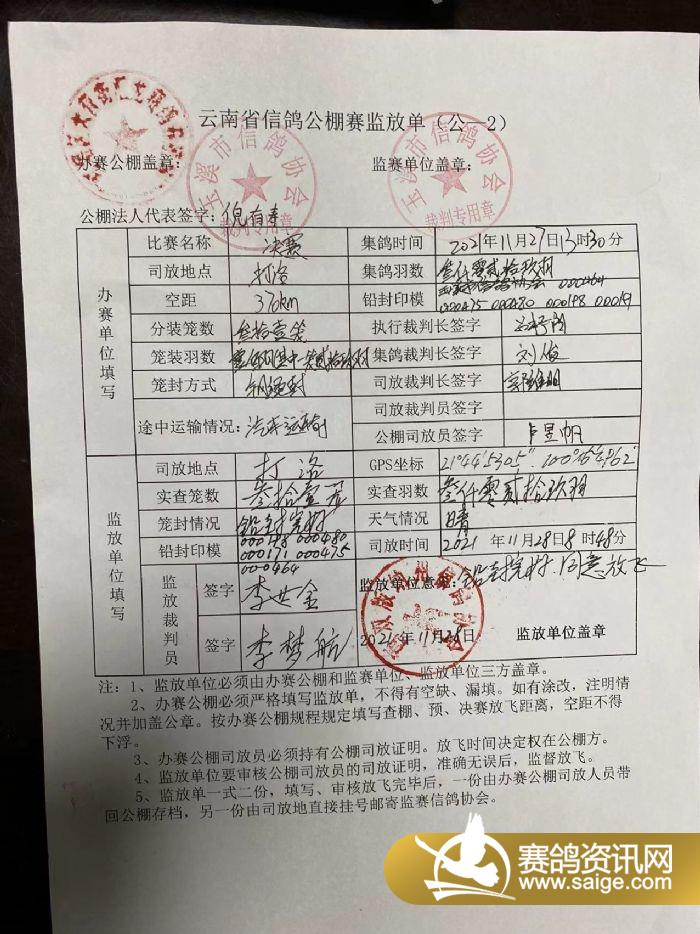 云南省信鸽公棚赛监放单（公—2）
办赛公棚盖章：
监赛单位盖章：
玉溪市信鸽协会
裁判专用章
玉溪市信鸽协会
裁判专用章
公棚法人代表签字：
办赛单位填写
比赛名称 决赛 集鸽时间 2021年11月27日13时30分
司放地点 打洛 集鸽羽数 叁仟零贰拾玖羽
空距 370km 铅封印模 000464
000475 000480 000198 000171
分装笼数 叁拾壹笼 执行裁判长签字
笼装羽数 集鸽裁判长签字 刘俊
笼封方式 司放裁判长签字
司放裁判员签字
途中运输情况：汽车运输 公棚司放员签字 卢昱帆
监放单位填写
司放地点 打洛 GPS坐标
实查笼数 叁拾壹笼 实查羽数 叁仟零贰拾玖羽
笼封情况 铅封完好 天气情况 晴
铅封印模 000198 000480
000171 000475
000464
司放时间 2021年11月28日8时48分
监放裁判员
签字 李世金
签字 李梦航
监放单位意见：铅封完好.同意放飞
2021年11月28日 监放单位盖章
注：1、监放单位必须由办赛公棚和监赛单位、监放单位三方盖章。
2、办赛公棚必须严格填写监放单，不得有空缺、漏填。如有涂改，注明情
况并加盖公章。按办赛公棚规程规定填写查棚、预、决赛放飞距离，空距不得
下浮。
3、办赛公棚司放员必须持有公棚司放证明。放飞时间决定权在公棚方。
4、监放单位要审核公棚司放员的司放证明，准确无误后，监督放飞。
5、监放单一式二份，填写、审核放飞完毕后，一份由办赛公棚司放人员带
回公棚存档，另一份由司放地直接挂号邮寄监赛信鸽协会。
赛鸽资讯网
www.saige.com